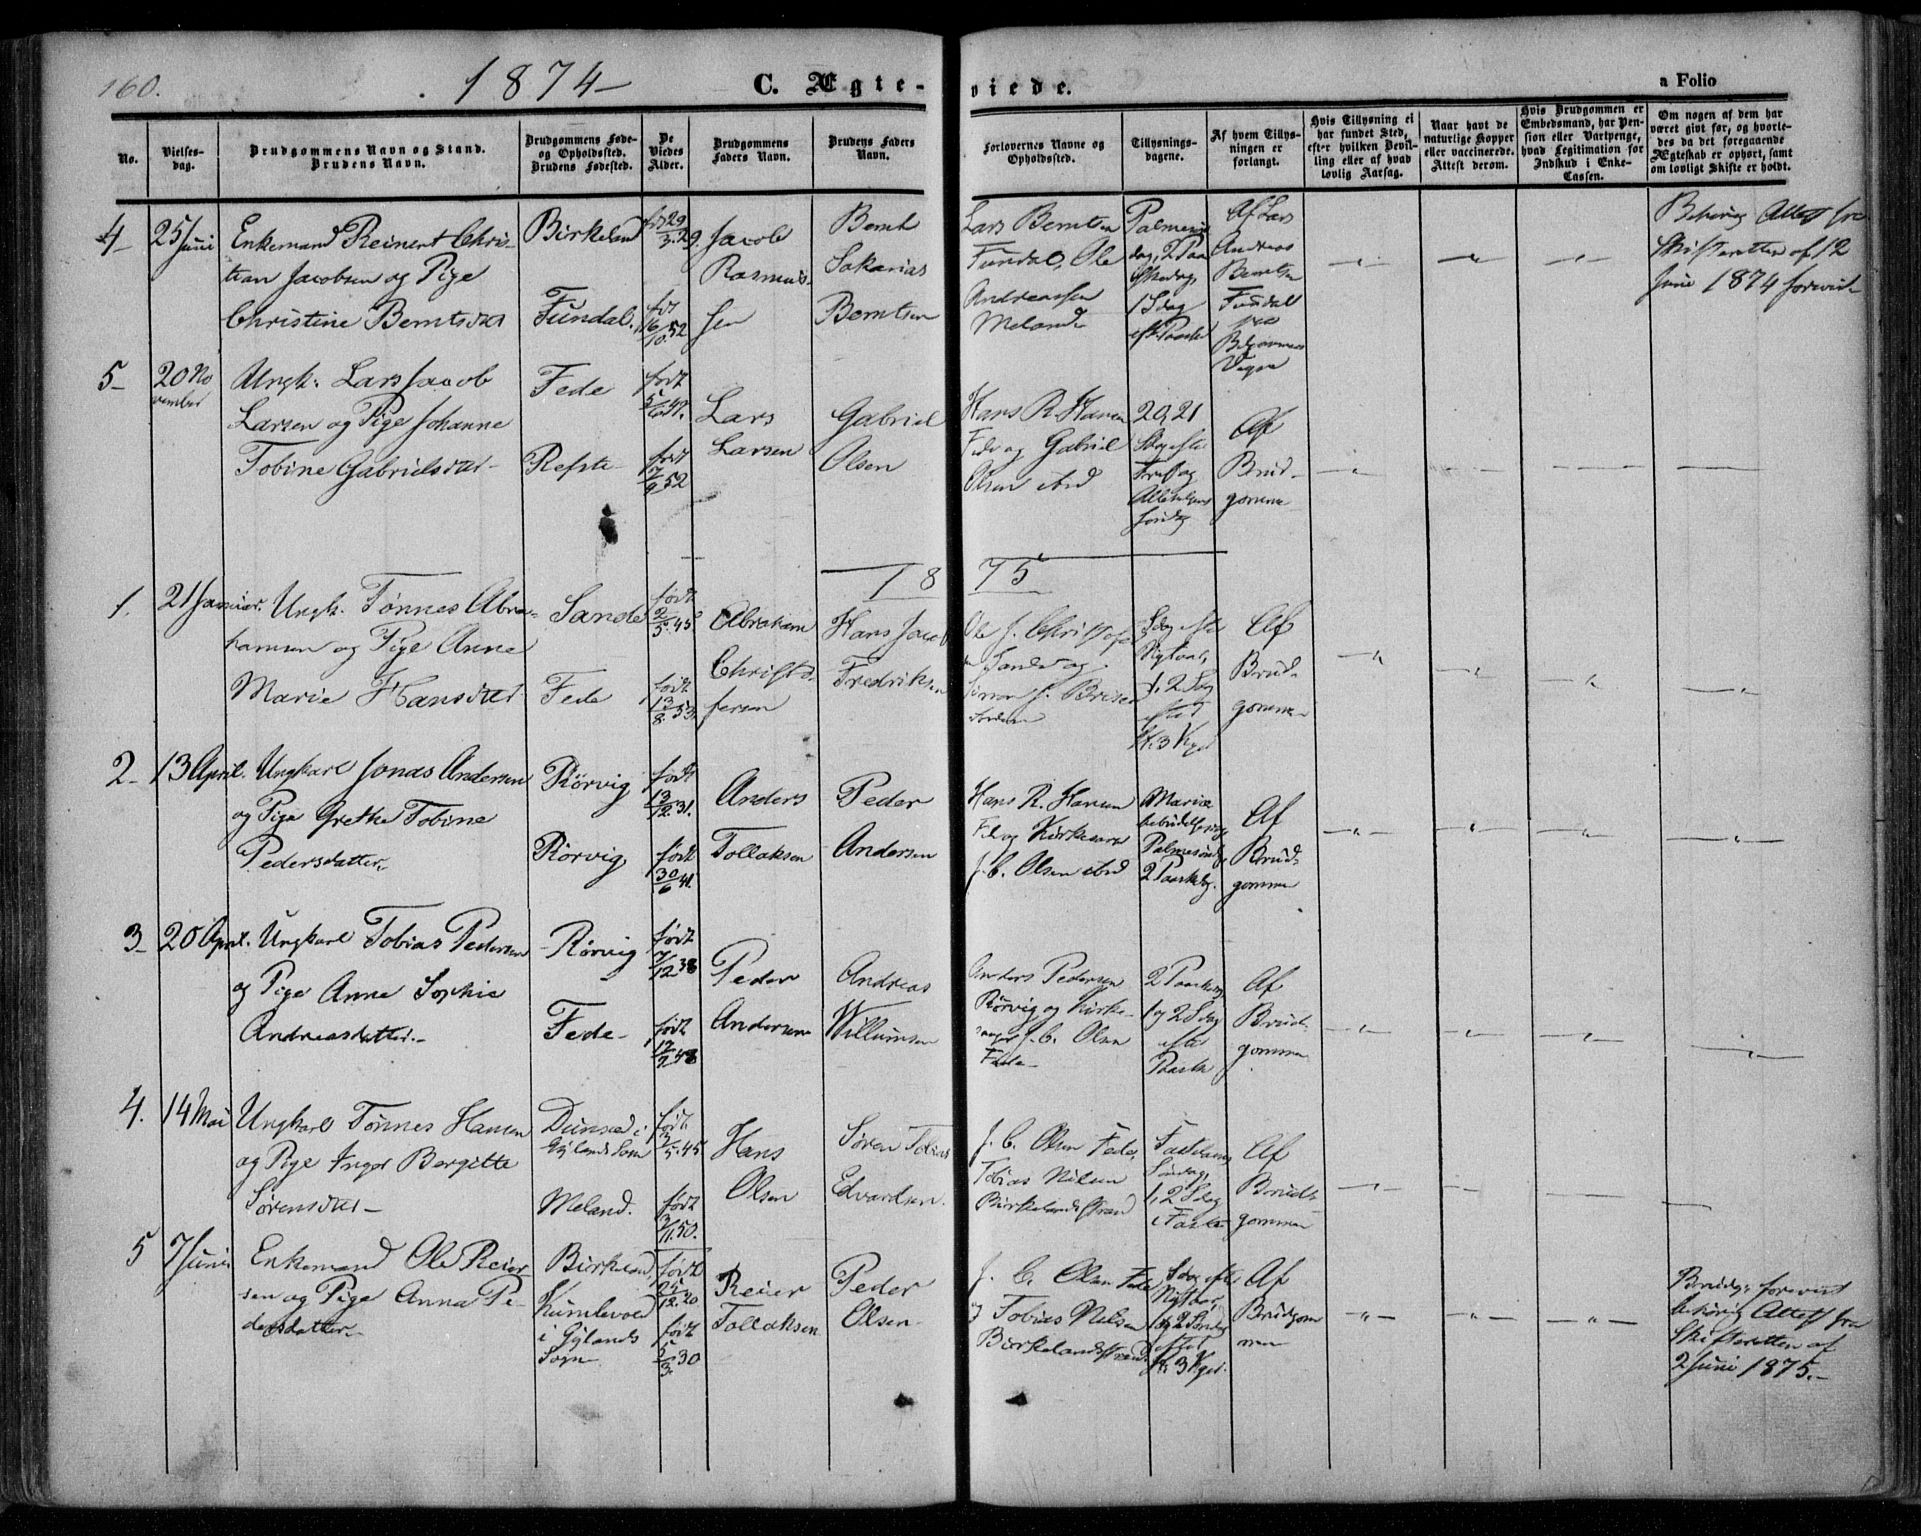 160.
1874
C. Ægte-
viede.
a Folio
No.
Vielses-
dag.
Brudgommens Navn og Stand.
Brudens Navn.
Brudgommens Føde-
og Opholdssted.
Brudens Fødested.
De
Viedes
Alder.
Brudgommens
Faders Navn.
Brudens Faders
Navn.
Forlovernes Navne og
Opholdssted.
Tillysnings-
dagene.
Af hvem Tillys-
ningen er
forlangt.
Hvis Tillysning ei
har fundet Sted,
efter hvilken Bevil-
ling eller af hvad
lovlig Aarsag.
Naar havt de
naturlige Kopper
eller vaccinerede.
Attest derom.
Hvis Brudgommen er
Embedsmand, har Pen-
sion eller Vartpenge,
hvad Legitimation for
Indskud i Enke-
Cassen.
Om nogen af dem har
været gift før, og hvorle-
des da det foregaaende
Ægteskab er ophørt, samt
om lovligt Skifte er holdt.
4
25 Juni
Enkemand Reinert Chris-
tian Jacobsen og Pige
Christine Berntsdtr
Birkeland
Fundal.
født 29/3.29
født 16/10.52
Jacob
Rasmus-
sen
Bernt
Sakarias
Berntsen
Lars Berntsen
Fundal, Ole
Andreassen
Meland
Palmesøn
dag, 2 Paa
skedag,
1 Sdag
eft. Paaske
Af Lars
Andreas
Berntsen
Fundal
paa
Vegne
Behørig Attest fra
Skifteretten af 12
Juni 1874 forevist
5
20 No
vember
Ungk. Lars Jacob
Larsen og Pige Johanne
Tobine Gabrielsdtr
Fede
Refste
født
født 17/9 52
Lars
Larsen
Gabriel
Olsen
Hans R. Hansen
Fede og Gabriel
Olsen ibid
20, 21
Sdag efter
Tref og
Allehelgens
søndag
Af
Brud-
gommen
1875
1.
21 Januar.
Ungk. Tønnes Abra-
hamsen og Pige Anne
Marie Hansdtr
Sande
Fede
født 2/5.45
født 13/8.53
Abraham
Christo-
fersen
Hans Jacob
Fredriksen
Ole J. Christofer
Sande og
Simon J.
Sdag efter
Nytaar,
1, 2 Sdag
efter
H. 3 Kgr
Af
Brud-
gommen
2
13 April.
Ungkarl Jonas Andersen
og Pige Grethe Tobine
Pedersdatter
Rørvig
Rørvig
født 13/12.31.
født 30/6 41.
Anders
Tollaksen
Peder
Andersen
Hans R. Hansen
Fede og Kirkesanger
J. C. Olsen ibid
Mariæ
bebudelsesdag
Palmesøndag,
2 Paaskedag.
Af
Brud-
gommen
3
20 April.
Ungkarl Tobias Pedersen
og Pige Anne Sophie
Andreasdatter
Rørvig
Fede
født 17/12 38
født 17/9.48
Peder
Andersen
Andreas
Willumsen
Anders Pedersen
Rørvig og Kirke-
sanger J. C. Olsen
Fede
2 Paaskedag
1 og 2 Sdag
efter
Paaske
Af
Brud-
gommen
4.
14 Mai
Ungkarl Tønnes Hansen
og Pige Inger Bergitte
Sørensdtr
Dunsæd i
Gylands Sogn
Meland.
født 2/5.45
født 3/11.50.
Hans
Olsen
Søren Tobias
Edvardsen
J. C. Olsen Fede,
Tobias Nilsen
Birkelandsstrand
Fastelavns
Søndag,
1, 2 Sdag
i Faste
Af
Brud-
gommen
5
7 Juni
Enkemand Ole Reier-
sen og Pige Anna Pe-
dersdatter
Birkeland
Kumlevold
i Gylands
Sogn
født 25/12.20
født 5/3.30
Reier
Tollaksen
Peder
Olsen
J. C. Olsen Fede
og Tobias Nilsen
Birkelandsstrand
Sdag efter
Nytaar,
1 og 2 Søndag
efter
H. 3 Kger
Af
Brudgom
men
Brudg. forevist
behørig Attest fra
Skifteretten af
2 Juni 1875.